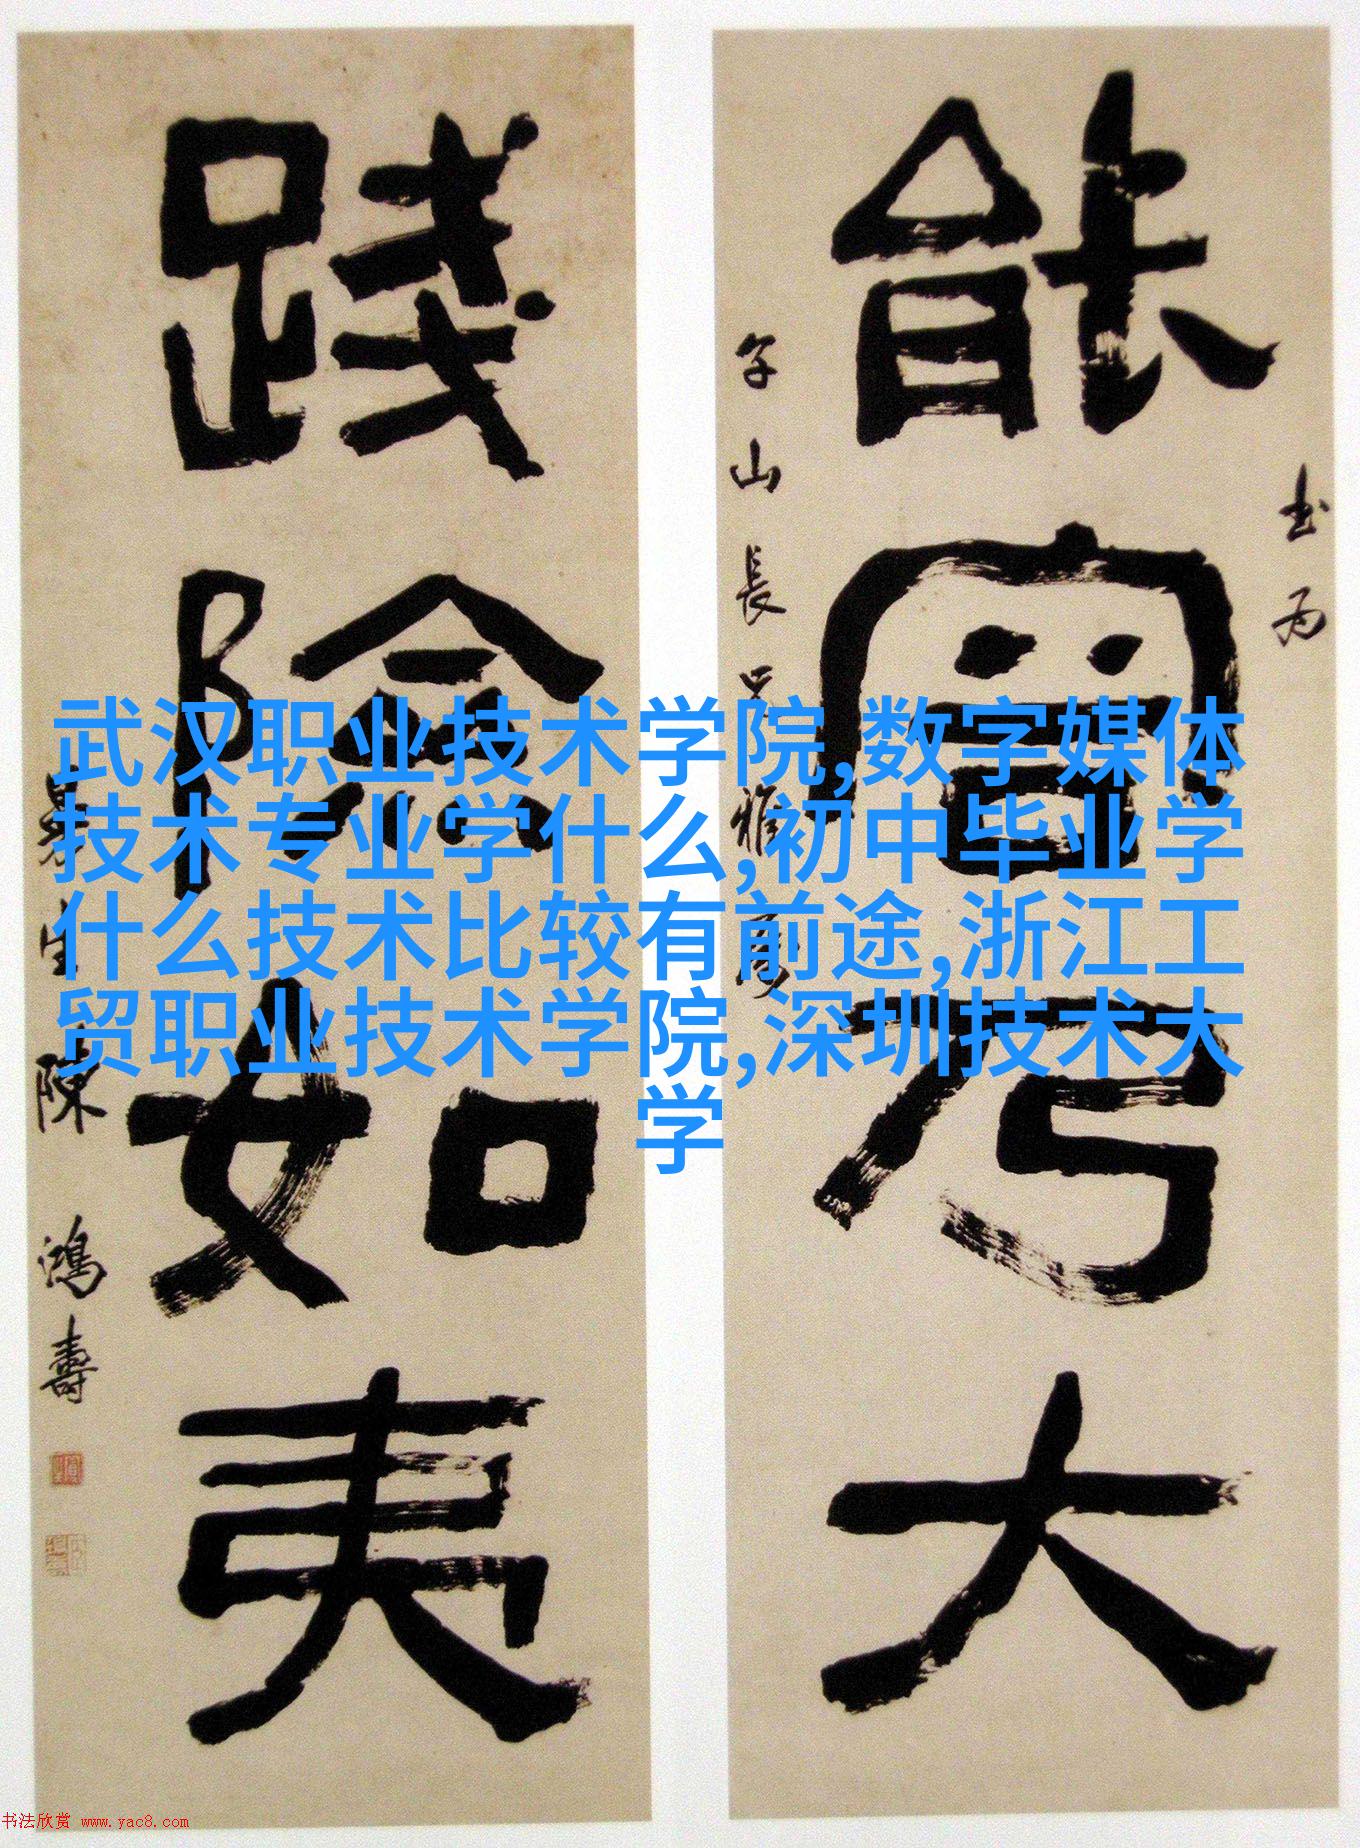 能
乃
大
書為
午山長兄雅屬
踐險如夷
曼生陳鴻壽
武汉职业技术学院,数字媒体
技术专业学什么,初中毕业学
什么技术比较有前途,浙江工
贸职业技术学院,深圳技术大
学
书法欣赏 www.yac8.com